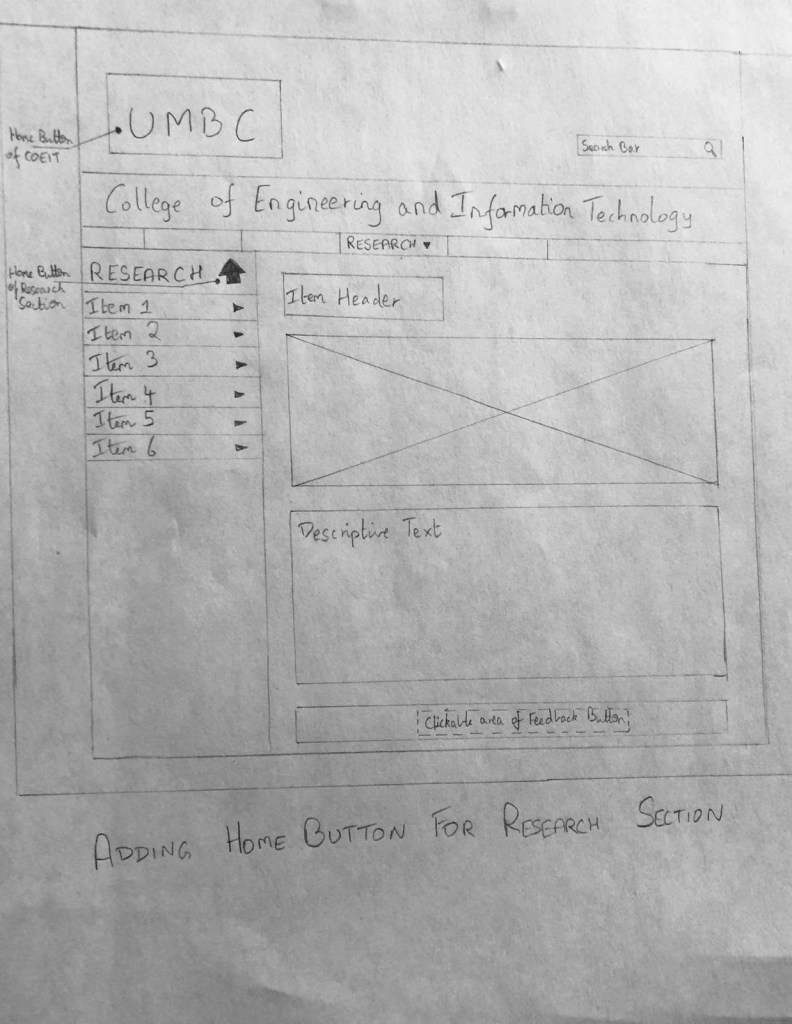 UMBC
Home Button
of COEIT
Search Bar
College of Engineering and Information Technology
RESEARCH
Home Button
of Research
Section
RESEARCH
Item 1
Item 2
Item 3
Item 4
Item 5
Item 6
Item Header
Descriptive Text
Clickable area of Feedback Button
ADDING HOME BUTTON FOR RESEARCH SECTION